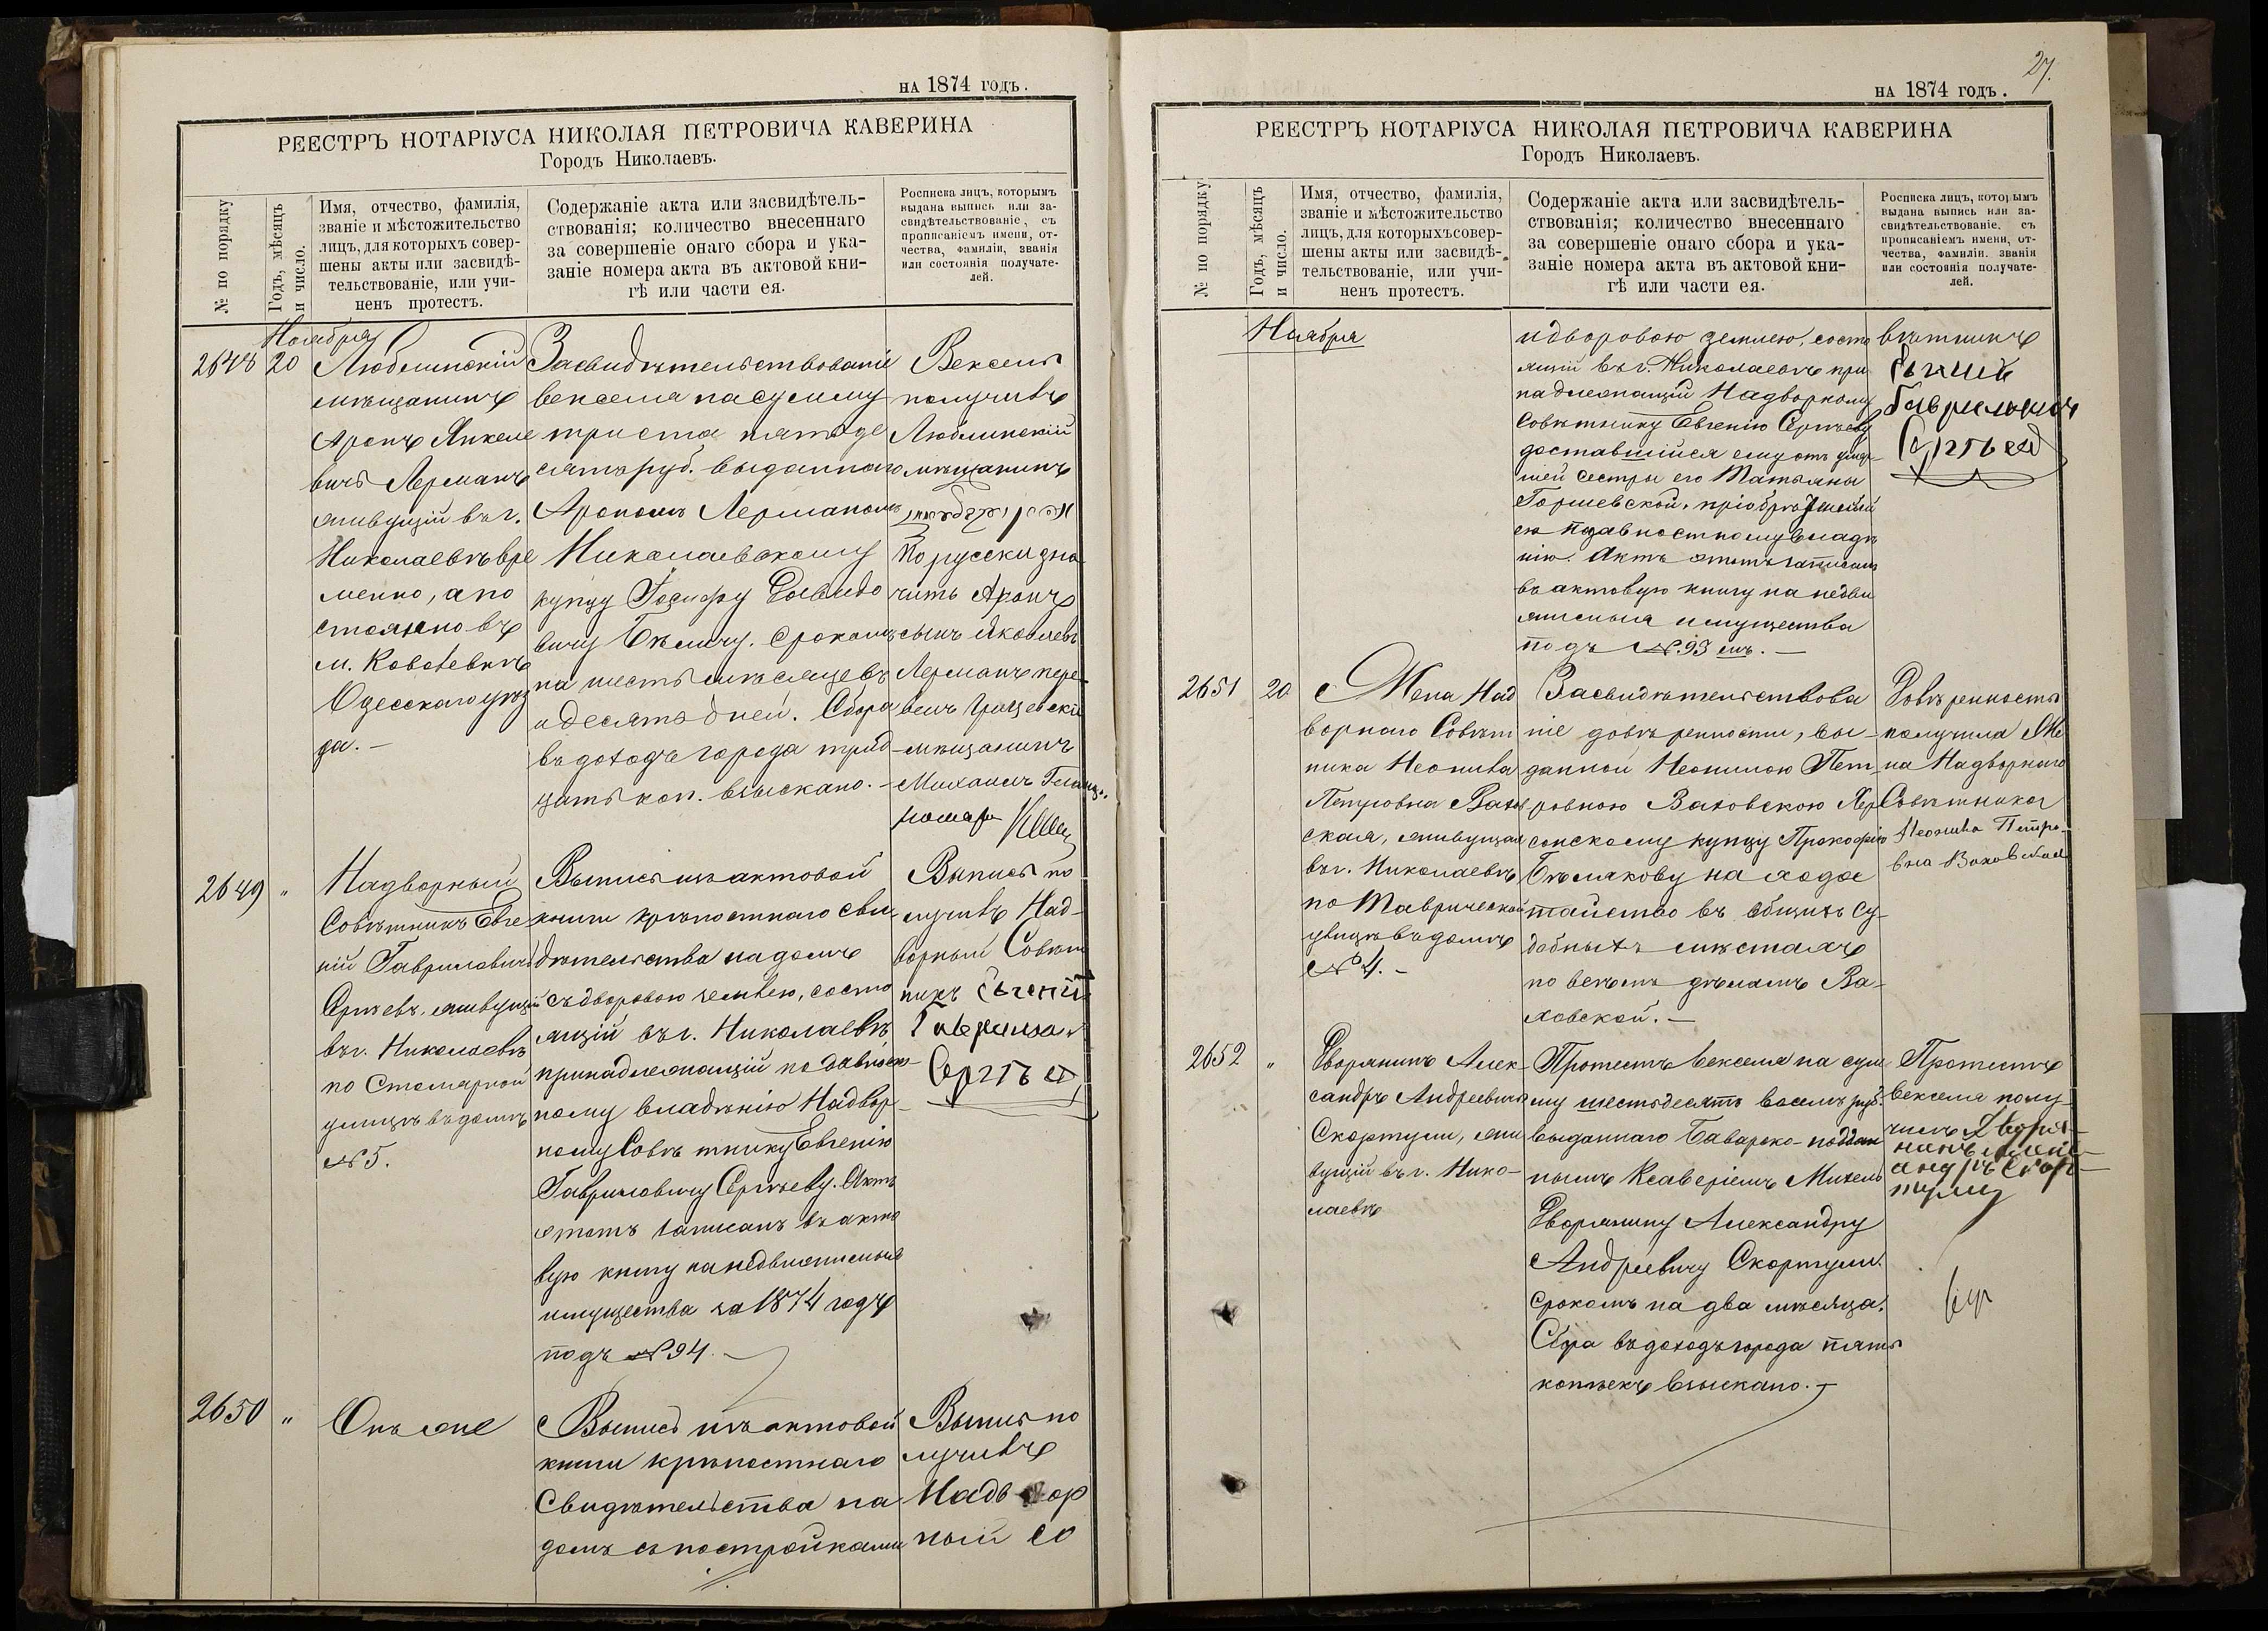 на 1874 годъ.
РЕЕСТРЪ НОТАРІУСА НИКОЛАЯ ПЕТРОВИЧА КАВЕРИНА
Городъ Николаевъ.
№ по порядку
Годъ, мѣсяцъ
и число.
Имя, отчество, фамилія,
званіе и мѣстожительство
лицъ, для которыхъ совер-
шены акты или засвидѣ-
тельствованіе, или учи-
ненъ протестъ.
Содержаніе акта или засвидѣтель-
ствованія; количество внесеннаго
за совершеніе онаго сбора и ука-
заніе номера акта въ актовой кни-
гѣ или части ея.
Росписка лицъ, которымъ
выдана выпись или за-
свидѣтельствованіе, съ
прописаніемъ имени, от-
чества, фамиліи, званія
или состоянія получате-
лей.
Ноября
2648
20
Люблинскій
мѣщанинъ
Аронъ Янкеле
вичъ Лерманъ
живущій въ г.
Николаевѣ вре
менно, а по
стоянно въ
м. Ковалевкѣ
Одесскаго уѣз
да. –
Засвидѣтельствованіе
векселя на сумму
триста пятьде
сятъ руб. выданнаго
Арономъ Лерманомъ
Николаевскому
купцу Іосифу Давидо
вичу Бѣличу. срокомъ
на шесть мѣсяцевъ
и десять дней. Сбора
въ доходъ города трид-
цать коп. взыскано. –
Вексель
получилъ
Люблинскій
мѣщанинъ
По русски зна
читъ Аронъ
сынъ Яковлевъ
Лерманъ пере-
велъ
мѣщанинъ
Михаилъ
2649
"
Надворный
Совѣтникъ Евге
ній Гавриловичъ
Сергѣевъ, живущій
въ г. Николаевѣ
по Столярной
улицѣ въ домѣ
№ 5.
Выпись изъ актовой
книги крѣпостнаго сви
дѣтельства на домъ
съ дворовою землею, состо
ящій въ г. Николаевѣ
принадлежащій по давност-
ному владѣнію Надвор-
ному Совѣтнику Евгенію
Гавриловичу Сергѣеву. Актъ
этотъ записанъ въ акто
вую книгу на недвижимыя
имущества за 1874 годъ
подъ № 94. –
Выпись по
лучилъ Над-
ворный Совѣт
никъ Евгеній
Гавриловъ
Сергѣевъ
2650
"
Онъ же
Выпись изъ актовой
книги крѣпостнаго
Свидѣтельства на
домъ съ постройками
Выпись по
лучилъ
Надвор
ный со
27.
на 1874 годъ.
РЕЕСТРЪ НОТАРІУСА НИКОЛАЯ ПЕТРОВИЧА КАВЕРИНА
Городъ Николаевъ.
№ по порядку
Годъ, мѣсяцъ
и число.
Имя, отчество, фамилія,
званіе и мѣстожительство
лицъ, для которыхъ совер-
шены акты или засвидѣ-
тельствованіе, или учи-
ненъ протестъ.
Содержаніе акта или засвидѣтель-
ствованія; количество внесеннаго
за совершеніе онаго сбора и ука-
заніе номера акта въ актовой кни-
гѣ или части ея.
Росписка лицъ, которымъ
выдана выпись или за-
свидѣтельствованіе, съ
прописаніемъ имени, от-
чества, фамиліи, званія
или состоянія получате-
лей.
Ноября
и дворовою землею, состо
ящій въ г. Николаевѣ при
надлежащій Надворному
Совѣтнику Евгенію Сергѣеву
доставшійся ему отъ умер-
шей сестры его Татьяны
пріобрѣтенный
ею по давностному владѣ
нію. Актъ этотъ записанъ
въ актовую книгу на недви
жимыя имущества
подъ № 93 мъ. –
вѣтникъ
Евгеній
Гавриловичъ
Сергѣевъ
2651
20
Жена Над
ворнаго Совѣт
ника Неонила
Петровна Вахов
ская, живущая
въ г. Николаевѣ
по Таврической
улицѣ въ домѣ
№ 4. –
Засвидѣтельствова
ніе довѣренности, вы-
данной Неонилою Пет-
ровною Ваховскою Хер
сонскому купцу Прокофію
Бѣлякову на хода
тайство въ общихъ су-
дебныхъ мѣстахъ
по всѣмъ дѣламъ Ва-
ховской. –
Довѣренность
получила Же
на Надворнаго
Совѣтника
Неонила Петро-
вна Ваховская
2652
"
Дворянинъ Алек-
сандръ Андреевичъ
Скортули, жи
вущій въ г. Нико-
лаевѣ
Протестъ векселя на сум
му шестьдесятъ восемь руб.
выданнаго Баварско-поддан
нымъ Ксаверіемъ Михель
Дворянину Александру
Андреевичу Скортули.
срокомъ на два мѣсяца.
Сбора въ доходъ города пять
копѣекъ взыскано. –
Протестъ
векселя полу-
чилъ Дворя-
нинъ Алекс-
андръ Скор-
тули